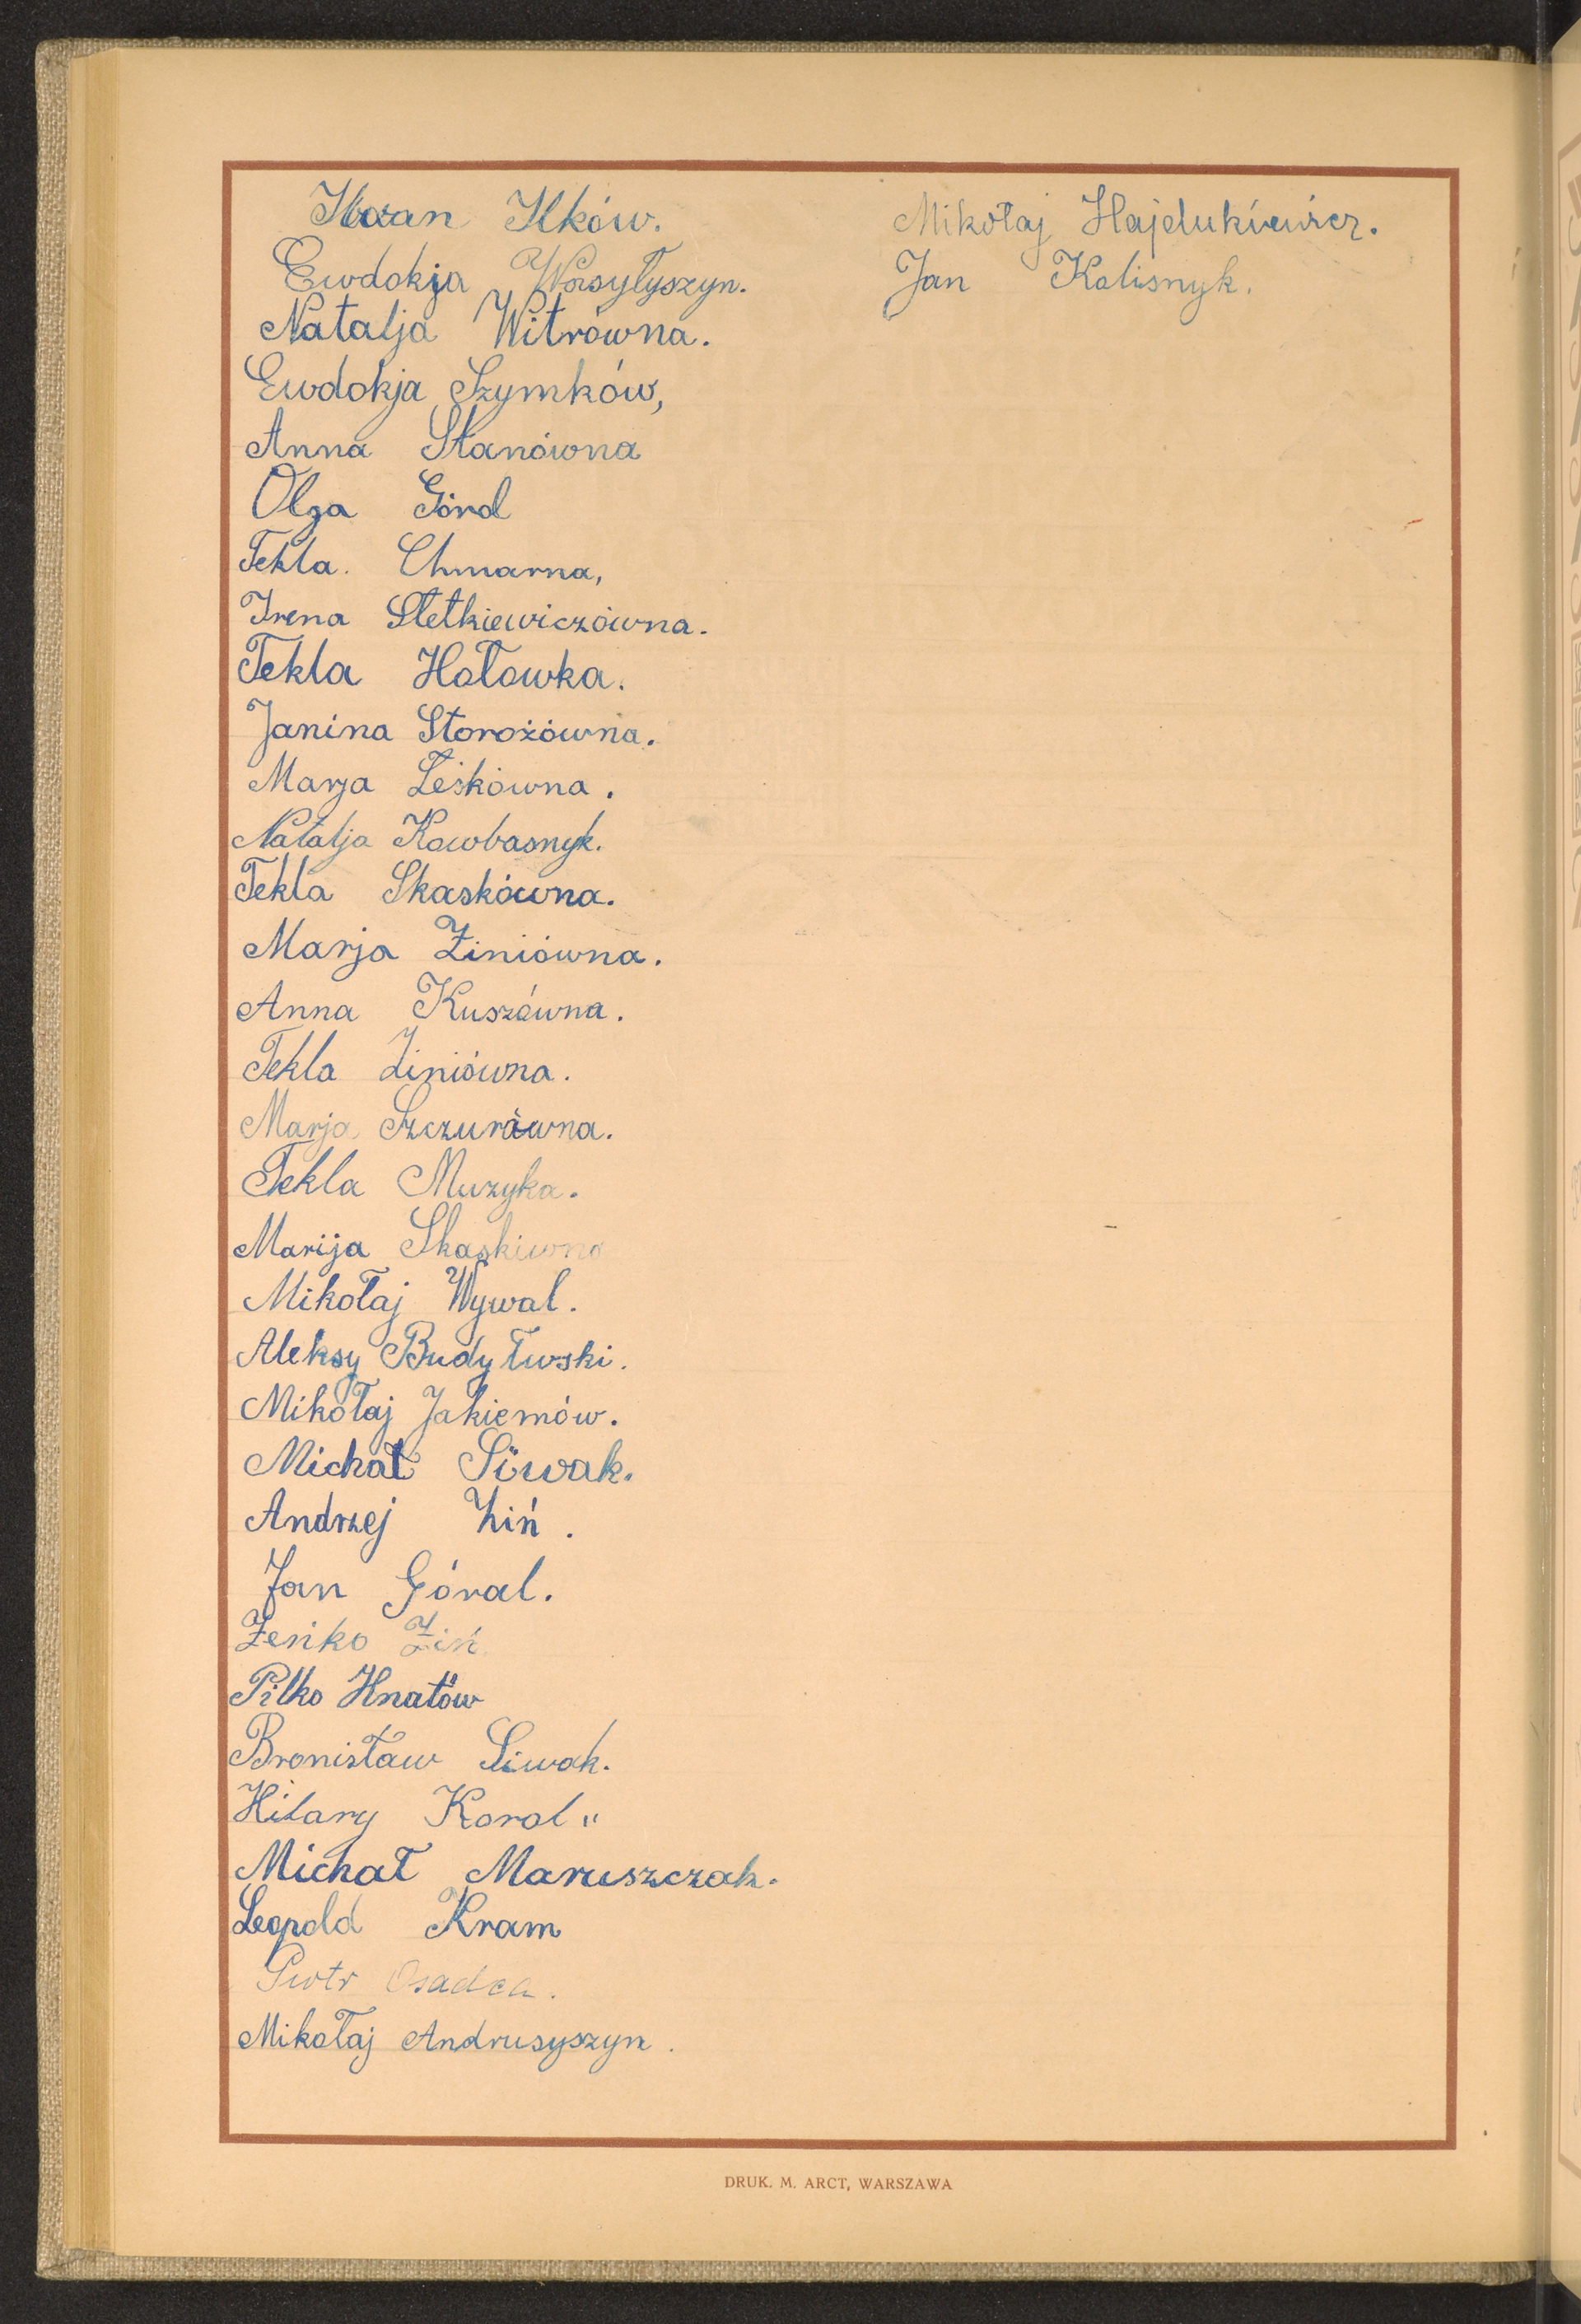 Iwan Ilków.
Ewdokja Wasyłyszyn.
Natalja Witrówna.
Ewdokja Szymków,
Anna Stanówna
Olga Górd
Tekla. Chmarna,
Irena Stetkiewiczówna.
Tekla Hołowka.
Janina Storożówna.
Marja Leśkówna.
Natalja Kowbasnyk.
Tekla Skaskówna.
Marja Ziniówna.
Anna Kuszówna.
Tekla Ziniówna.
Marja Szczurówna.
Tekla Muzyka.
Marija Skaskiwna
Mikołaj Wywal.
Aleksy Budyłwski.
Mikołaj Jakiemów.
Michał Siwak.
Andrzej Ziń.
Jan Góral.
Zeńko Ziń
Pilko Hnatów
Bronisław Siwak.
Hilary Korol"
Michał Maruszczak.
Leopold Kram
Piotr Osadca.
Mikołaj Andrusyszyn.
Mikołaj Hajdukiewicz.
Jan Kolisnyk.
DRUK. M. ARCT, WARSZAWA